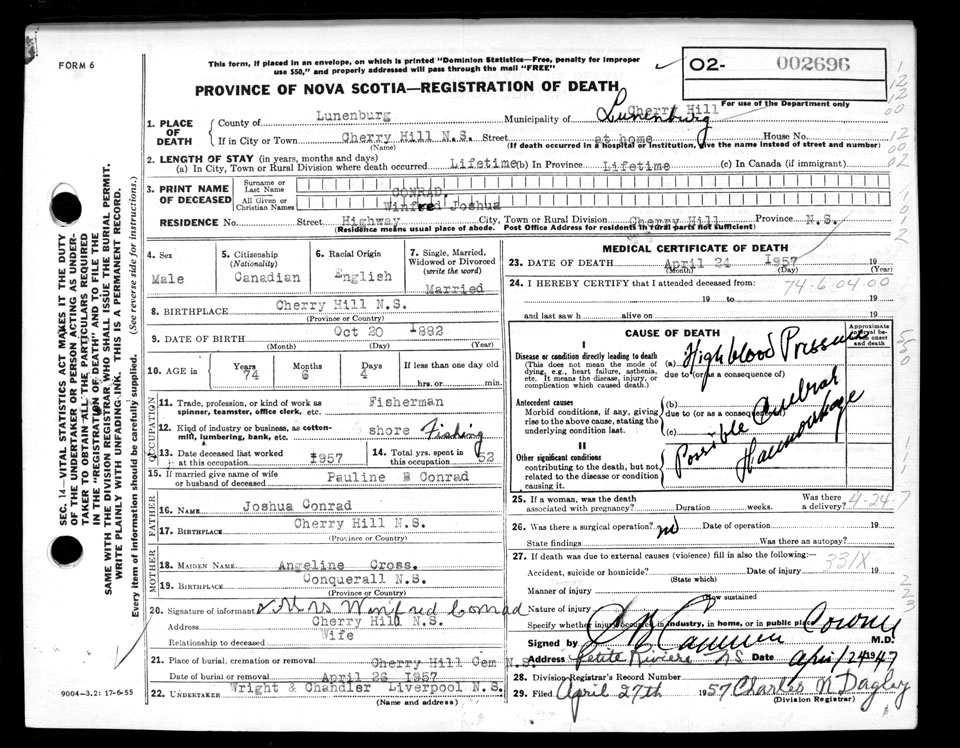 FORM 6
This form, if placed in an envelope, on which is printed "Dominion Statistics—Free, penalty for improper
use $50," and properly addressed will pass through the mail "FREE"
02- 002696
PROVINCE OF NOVA SCOTIA—REGISTRATION OF DEATH
For use of the Department only
1. PLACE OF DEATH
County of Lunenburg Municipality of Cherry Hill Lunenburg
If in City or Town Cherry Hill N.S. Street at home House No.
(Name) (If death occurred in a hospital or institution, give the name instead of street and number)
2. LENGTH OF STAY (in years, months and days)
(a) In City, Town or Rural Division where death occurred Lifetime (b) In Province Lifetime (c) In Canada (if immigrant)
3. PRINT NAME OF DECEASED
Surname or Last Name CONRAD,
All Given or Christian Names Winfred Joshua
RESIDENCE No. Street Highway City, Town or Rural Division Cherry Hill Province N.S.
(Residence means usual place of abode. Post Office Address for residents in rural parts not sufficient)
4. Sex
Male
5. Citizenship
(Nationality)
Canadian
6. Racial Origin
English
7. Single, Married,
Widowed or Divorced
(write the word)
Married
8. BIRTHPLACE Cherry Hill N.S.
(Province or Country)
9. DATE OF BIRTH Oct 20 1892
(Month) (Day) (Year)
10. AGE in
Years 74
Months 6
Days 4
If less than one day old
hrs. or min.
OCCUPATION
11. Trade, profession, or kind of work as
spinner, teamster, office clerk, etc. Fisherman
12. Kind of industry or business, as cotton-
mill, lumbering, bank, etc. shore Fishing
13. Date deceased last worked
at this occupation 1957
14. Total yrs. spent in
this occupation 52
15. If married give name of wife
or husband of deceased Pauline B Conrad
FATHER
16. NAME Joshua Conrad
17. BIRTHPLACE Cherry Hill N.S.
(Province or Country)
MOTHER
18. MAIDEN NAME Angeline Cross.
19. BIRTHPLACE Conquerall N.S.
(Province or Country)
20. Signature of informant x Mrs Winifred Conrad
Address Cherry Hill N.S.
Relationship to deceased Wife
21. Place of burial, cremation or removal Cherry Hill Cem N.S.
Date of burial or removal April 26 1957
22. UNDERTAKER Wright & Chandler Liverpool N.S.
(Name and address)
9004-3.2: 17-6-55
MEDICAL CERTIFICATE OF DEATH
23. DATE OF DEATH April 24 1957 19
(Month) (Day) (Year)
24. I HEREBY CERTIFY that I attended deceased from:
74-6-04-00
19 to 19
and last saw h alive on 19
CAUSE OF DEATH
Approximate interval between onset and death
I
Disease or condition directly leading to death
(This does not mean the mode of
dying, e.g., heart failure, asthenia,
etc. It means the disease, injury, or
complication which caused death.)
(a) High blood Pressure
due to (or as a consequence of)
Antecedent causes
Morbid conditions, if any, giving
rise to the above cause, stating the
underlying condition last.
(b)
due to (or as a consequence of)
(c)
Possible Cerebral
Haemorrhage
II
Other significant conditions
contributing to the death, but not
related to the disease or condition
causing it.
25. If a woman, was the death
associated with pregnancy? Duration weeks.
Was there
a delivery?
4-24-7
26. Was there a surgical operation? no Date of operation 19
State findings Was there an autopsy?
27. If death was due to external causes (violence) fill in also the following:—
Accident, suicide or homicide? Date of injury 331X 19
(State which)
Manner of injury
(How sustained
Nature of injury
Specify whether injury occurred in industry, in home, or in public place
Signed by M.D.
Address Petite Riviere NS Date April 24 1947
28. Division Registrar's Record Number
29. Filed April 27th 1957 Charles N Dagley
(Division Registrar)
SEC. 14—VITAL STATISTICS ACT MAKES IT THE DUTY
OF THE UNDERTAKER OR PERSON ACTING AS UNDER-
TAKER TO OBTAIN ALL THE PARTICULARS REQUIRED
IN THE "REGISTRATION OF DEATH" AND TO FILE THE
SAME WITH THE DIVISION REGISTRAR WHO SHALL ISSUE THE BURIAL PERMIT.
WRITE PLAINLY WITH UNFADING INK. THIS IS A PERMANENT RECORD.
Every item of information should be carefully supplied. (See reverse side for instructions.)